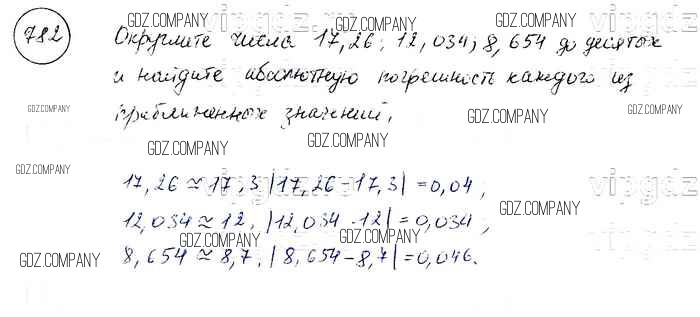 782 Округлите числа 17,26; 12,034; 8,654 до десятых
и найдите абсолютную погрешность каждого из
приближенных значений.
17,26 ≈ 17,3 |17,26 - 17,3| = 0,04,
12,034 ≈ 12, |12,034 - 12| = 0,034,
8,654 ≈ 8,7, |8,654 - 8,7| = 0,046.
GDZ.COMPANY
GDZ.COMPANY
GDZ.COMPANY
GDZ.COMPANY
GDZ.COMPANY
GDZ.COMPANY
GDZ.COMPANY
GDZ.COMPANY
GDZ.COMPANY
GDZ.COMPANY
GDZ.COMPANY
GDZ.COMPANY
GDZ.COMPANY
GDZ.COMPANY
vipgdz
vipgdz
vipgdz
vipgdz